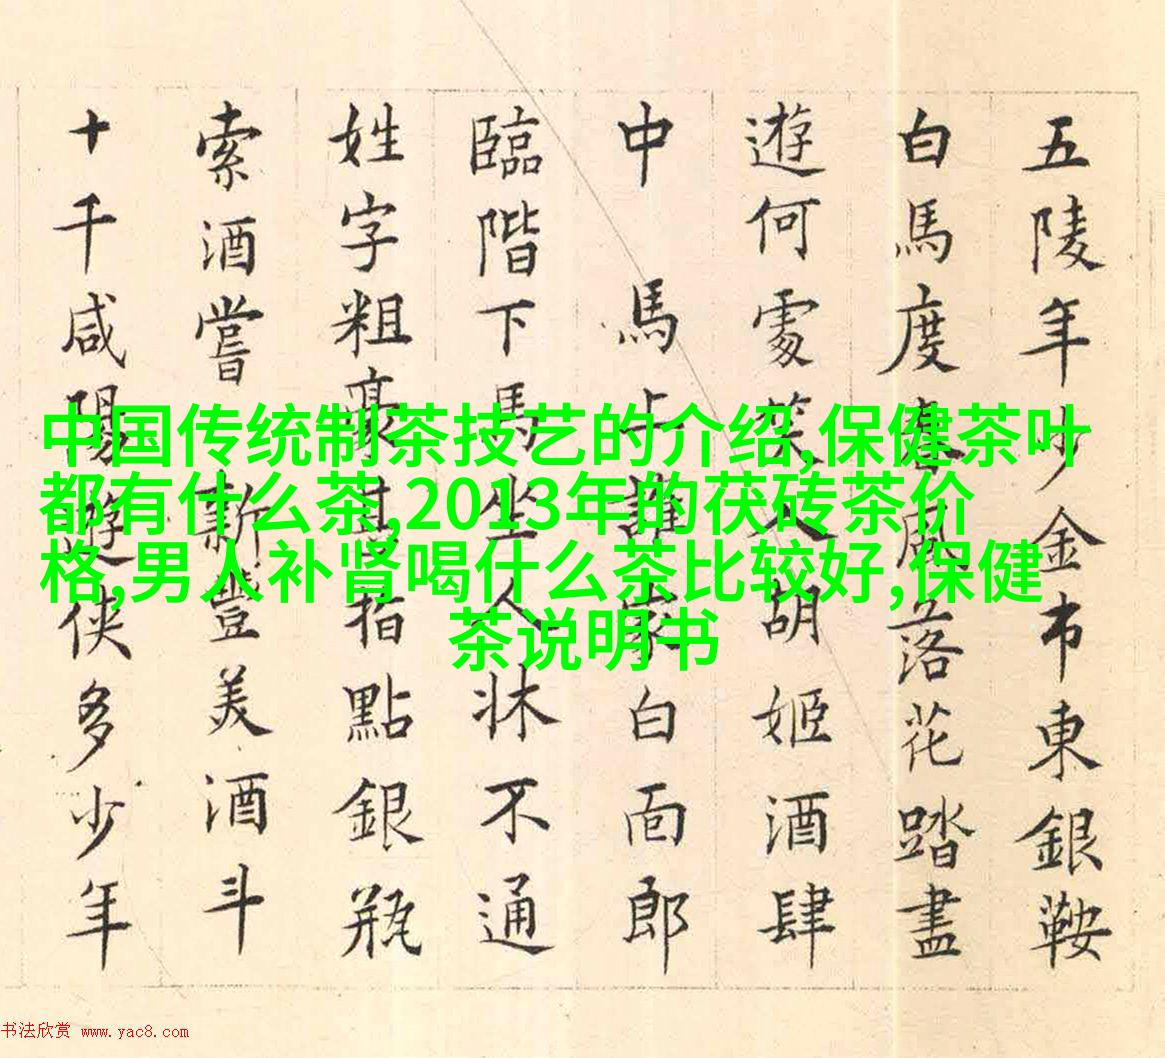 五陵年少金市東銀鞍
白馬度春風落花踏盡
遊何處笑入胡姬酒肆
中 馬上誰家白面郎
臨階下馬坐人牀不通
姓字粗豪甚指點銀瓶
索酒嘗 新豐美酒斗
十千咸陽遊俠多少年
中国传统制茶技艺的介绍,保健茶叶
都有什么茶,2013年的茯砖茶价
格,男人补肾喝什么茶比较好,保健
茶说明书
书法欣赏 www.yac8.com